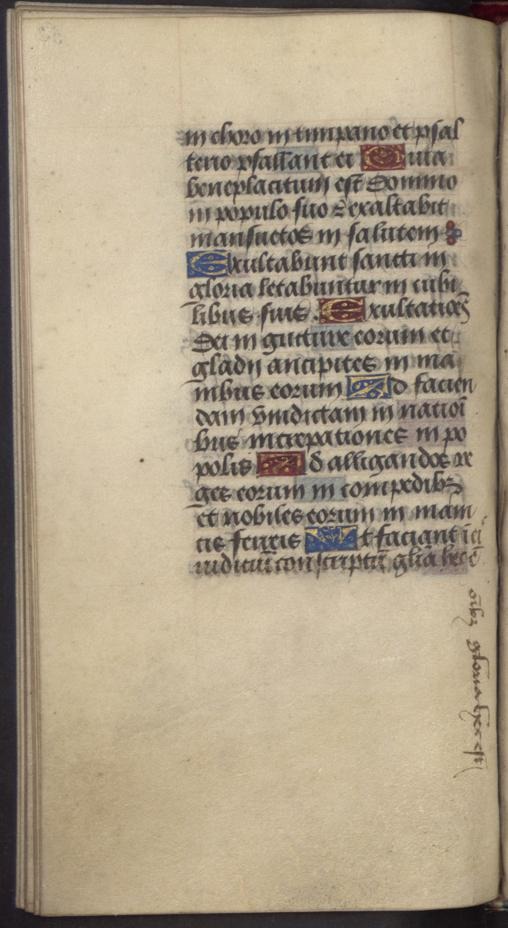 in choro in timpano et psal
terio psallant ei Quia
beneplacitum est Domino
in populo suo & exaltabit
mansuetos in salutem
Exultabunt sancti in
gloria letabuntur in cubi
libus suis Exultationes
Dei in guture eorum et
gladii ancipites in ma
nibus eorum Ad facien
dam vindictam in natioī
bus increpationes in po
polis Ad alligandos re
ges eorum in compedibꝫ
et nobiles eorum in mani
cis ferreis Ut faciant ī ei
iudiciū conscriptū glīa hec ē
oībꝫ